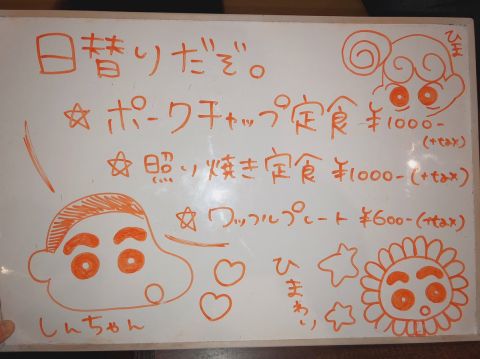 日替りだぞ。
ひま
☆ ポークチャップ定食 ¥1000-
(+tax)
☆ 照り焼き定食 ¥1000-(+tax)
☆ ワッフルプレート ¥600-(+tax)
ひまわり
しんちゃん